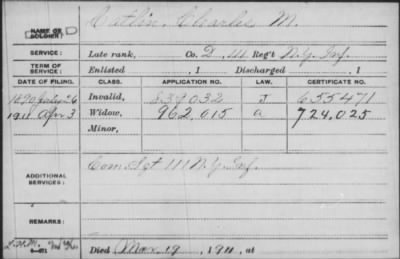 NAME OF SOLDIER: Catlin, Charles M.
SERVICE: Late rank, Co. D, 111 Reg't N.Y. Inf.
TERM OF SERVICE: Enlisted , 1 Discharged , 1
DATE OF FILING. CLASS. APPLICATION NO. LAW. CERTIFICATE NO.
1890 July 26 Invalid, 839032 J 655471
1911 Apr 3 Widow, 962,015 a 724,025
Minor,
ADDITIONAL SERVICES: Com Sgt 111 N.Y. Inf.
REMARKS:
Died Mar 19, 1911, at